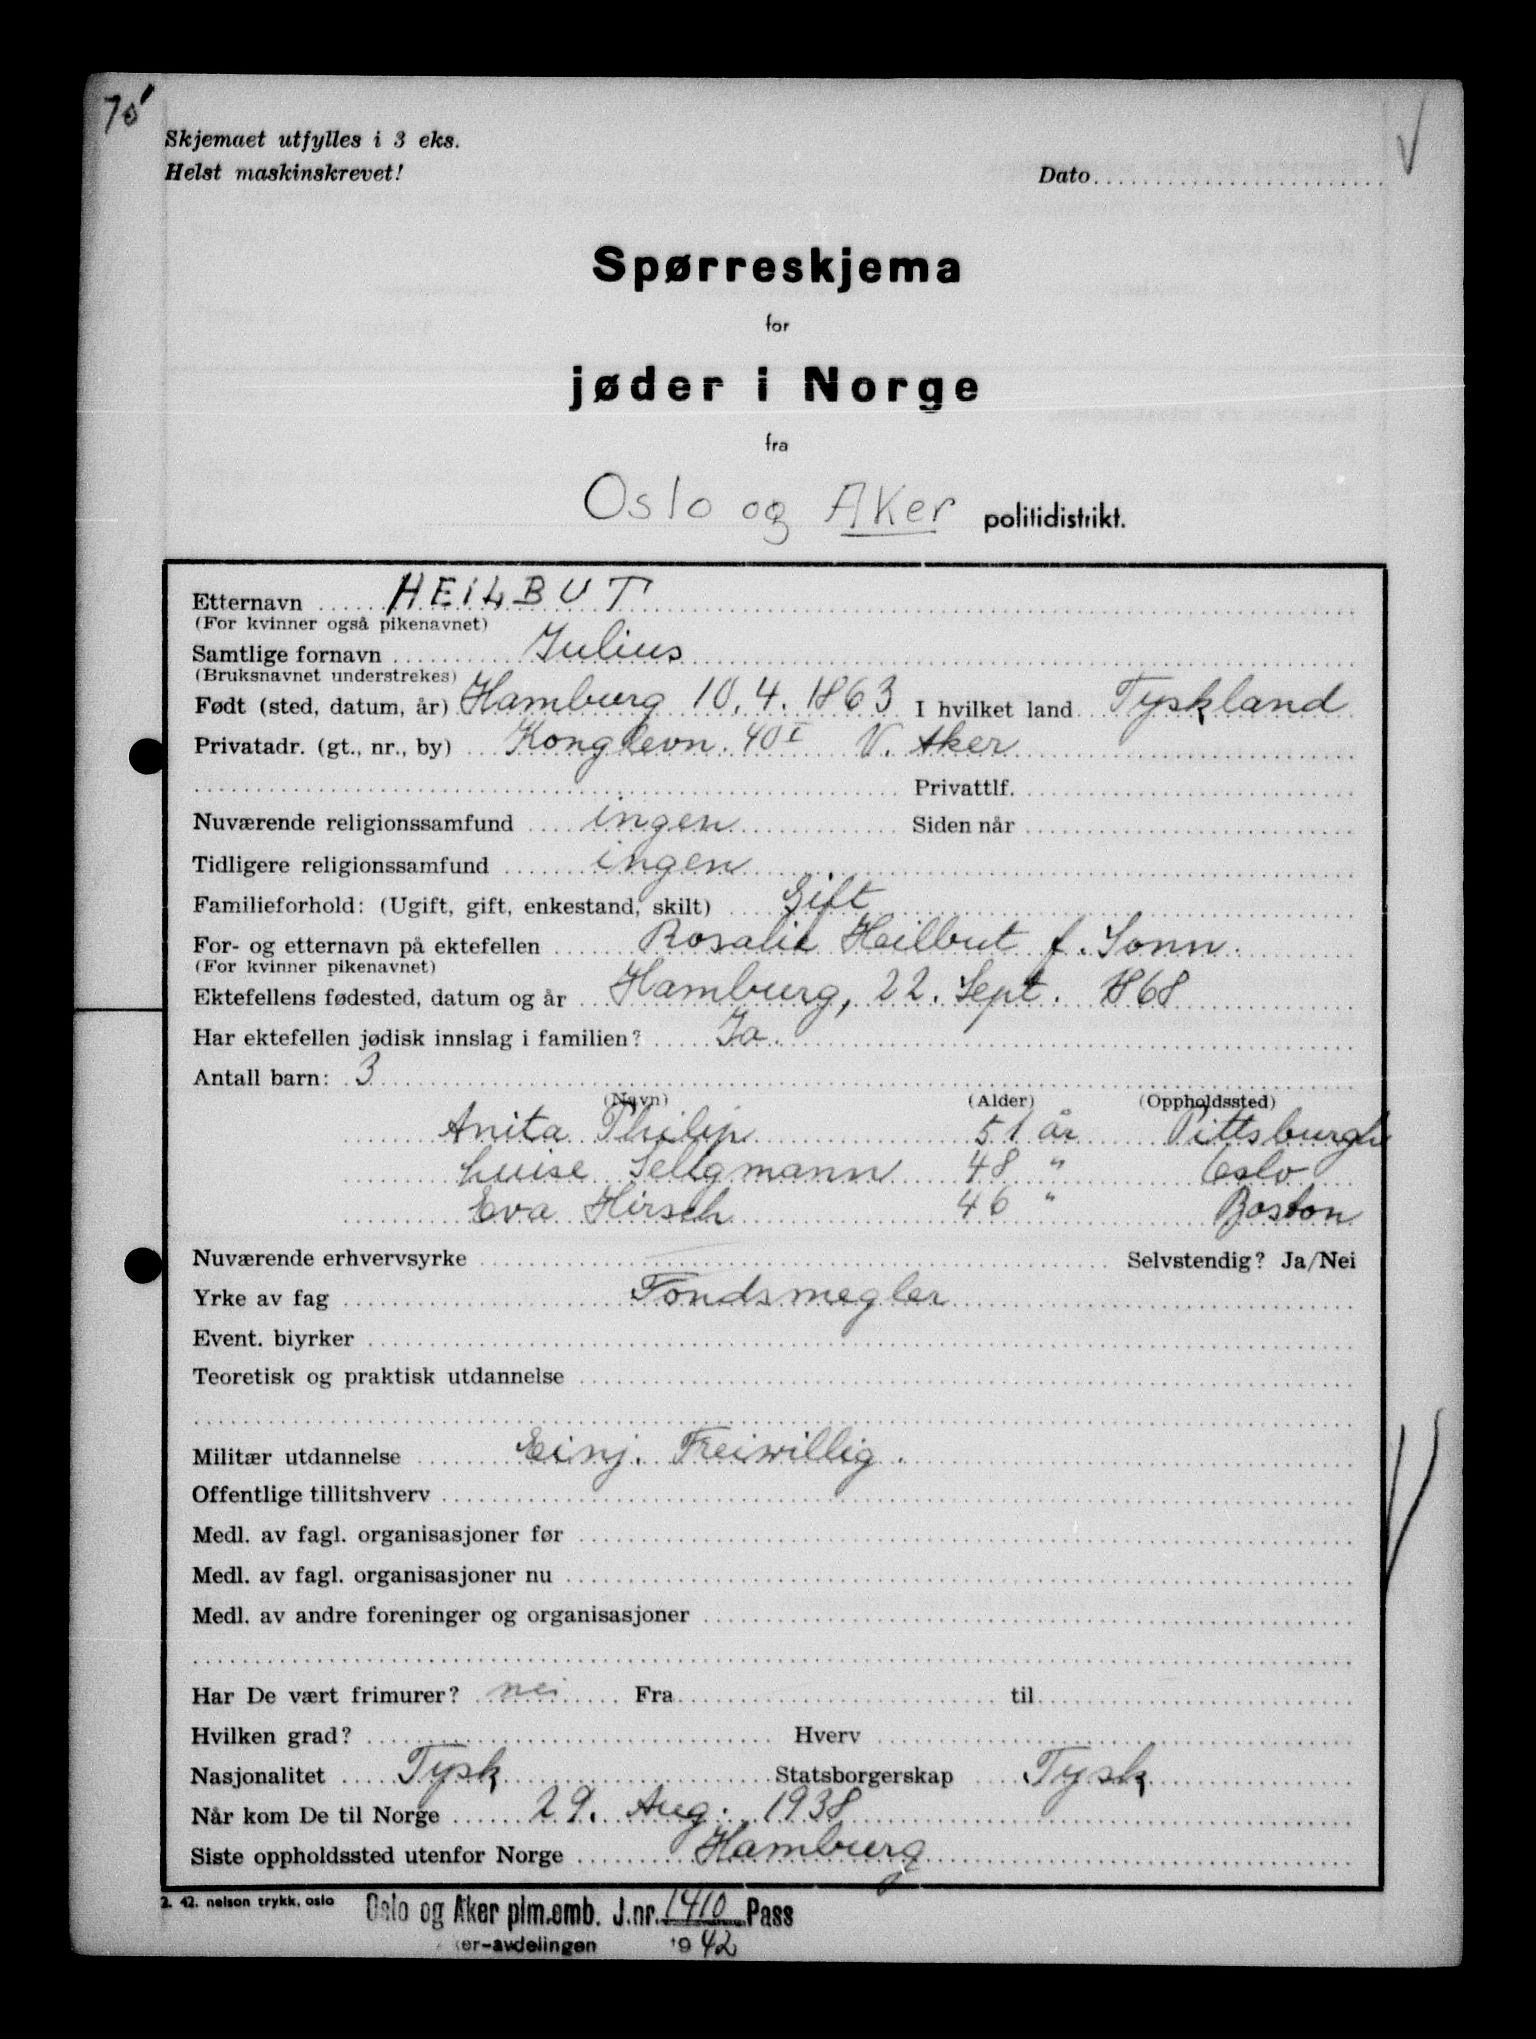 75
Skjemaet utfylles i 3 eks.
Helst maskinskrevet!
Dato
Spørreskjema
for
jøder i Norge
fra
Oslo og Aker politidistrikt.
Etternavn HEILBUT
(For kvinner også pikenavnet)
Samtlige fornavn Julius
(Bruksnavnet understrekes)
Født (sted, datum, år) Hamburg 10.4.1863 I hvilket land Tyskland
Privatadr. (gt., nr., by) Konglevn. 40 I V. Aker
Privattlf.
Nuværende religionssamfund ingen Siden når
Tidligere religionssamfund ingen
Familieforhold: (Ugift, gift, enkestand, skilt) Gift
For- og etternavn på ektefellen Rosalie Heilbut f. Sonn.
(For kvinner pikenavnet)
Ektefellens fødested, datum og år Hamburg, 22. Sept. 1868
Har ektefellen jødisk innslag i familien? Ja.
Antall barn: 3
(Navn) (Alder) (Oppholdssted)
Anita Philip 51 år Pittsburgh
Luise Seligmann 48 " Oslo
Eva Hirsch 46 " Boston
Nuværende erhvervsyrke Selvstendig? Ja/Nei
Yrke av fag Fondsmegler
Event. biyrker
Teoretisk og praktisk utdannelse
Militær utdannelse Einj. Freiwillig.
Offentlige tillitshverv
Medl. av fagl. organisasjoner før
Medl. av fagl. organisasjoner nu
Medl. av andre foreninger og organisasjoner
Har De vært frimurer? nei Fra til
Hvilken grad? Hverv
Nasjonalitet Tysk Statsborgerskap Tysk
Når kom De til Norge 29. Aug. 1938
Siste oppholdssted utenfor Norge Hamburg
2. 42. nelson trykk, oslo
Oslo og Aker plm.emb. J.nr. 1410 Pass
ker-avdelingen 1942